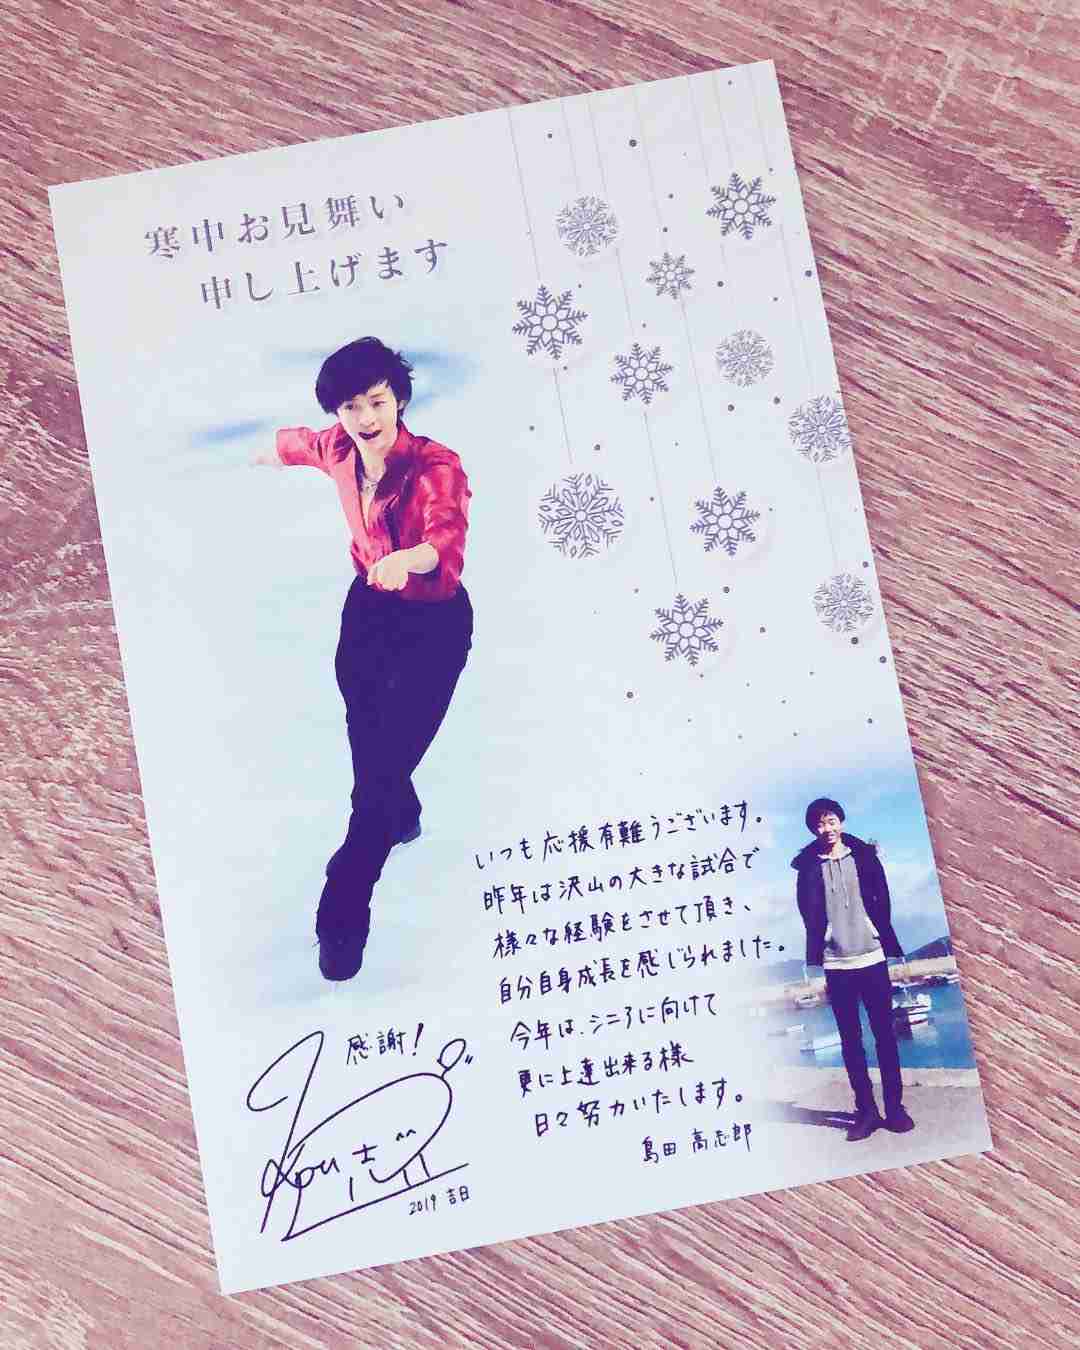 寒中お見舞い
申し上げます
いつも応援有難うございます。
昨年は沢山の大きな試合で
様々な経験をさせて頂き、
自分自身成長を感じられました。
今年は、シニアに向けて
更に上達出来る様
日々努力いたします。
島田 高志郎
感謝!
Kou志
2019 吉日